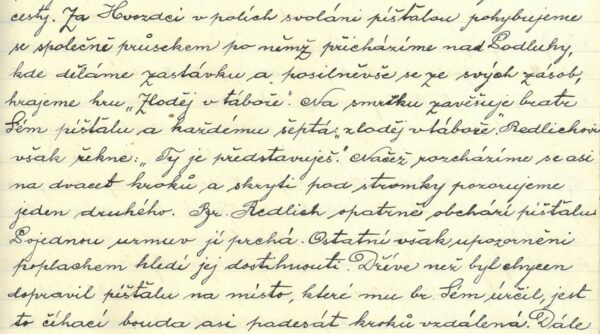 cesty. Za Hvozdci v polích svoláni píšťalou pohybujeme
se společně průsekem po němž přicházíme nad Podluhy,
kde děláme zastávku a posilněvše se ze svých zásob,
hrajeme hru „Zloděj v táboře". Na smrčku zavěšuje bratr
Sém píšťalu a každému šeptá: „zloděj v táboře", Redlichovi
však řekne: „Ty je představuješ." Načež rozcházíme se asi
na dvacet kroků a skryti pod stromky pozorujeme
jeden druhého. Br. Redlich opatrně obchází píšťalu
Pojednou urmuv jí prchá. Ostatní však upozorněni
poplachem hledí jej dostihnouti. Dříve než byl chycen
dopravil píšťalu na místo, které mu br. Sém určil, jest
to číhací bouda asi padesát kroků vzdálená. Dále